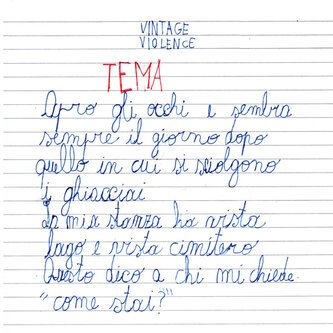 VINTAGE
VIOLENCE
TEMA
Apro gli occhi e sembra
sempre il giorno dopo
quello in cui si sciolgono
i ghiacciai
La mia stanza ha vista
lago e vista cimitero
Questo dico a chi mi chiede
"come stai?"